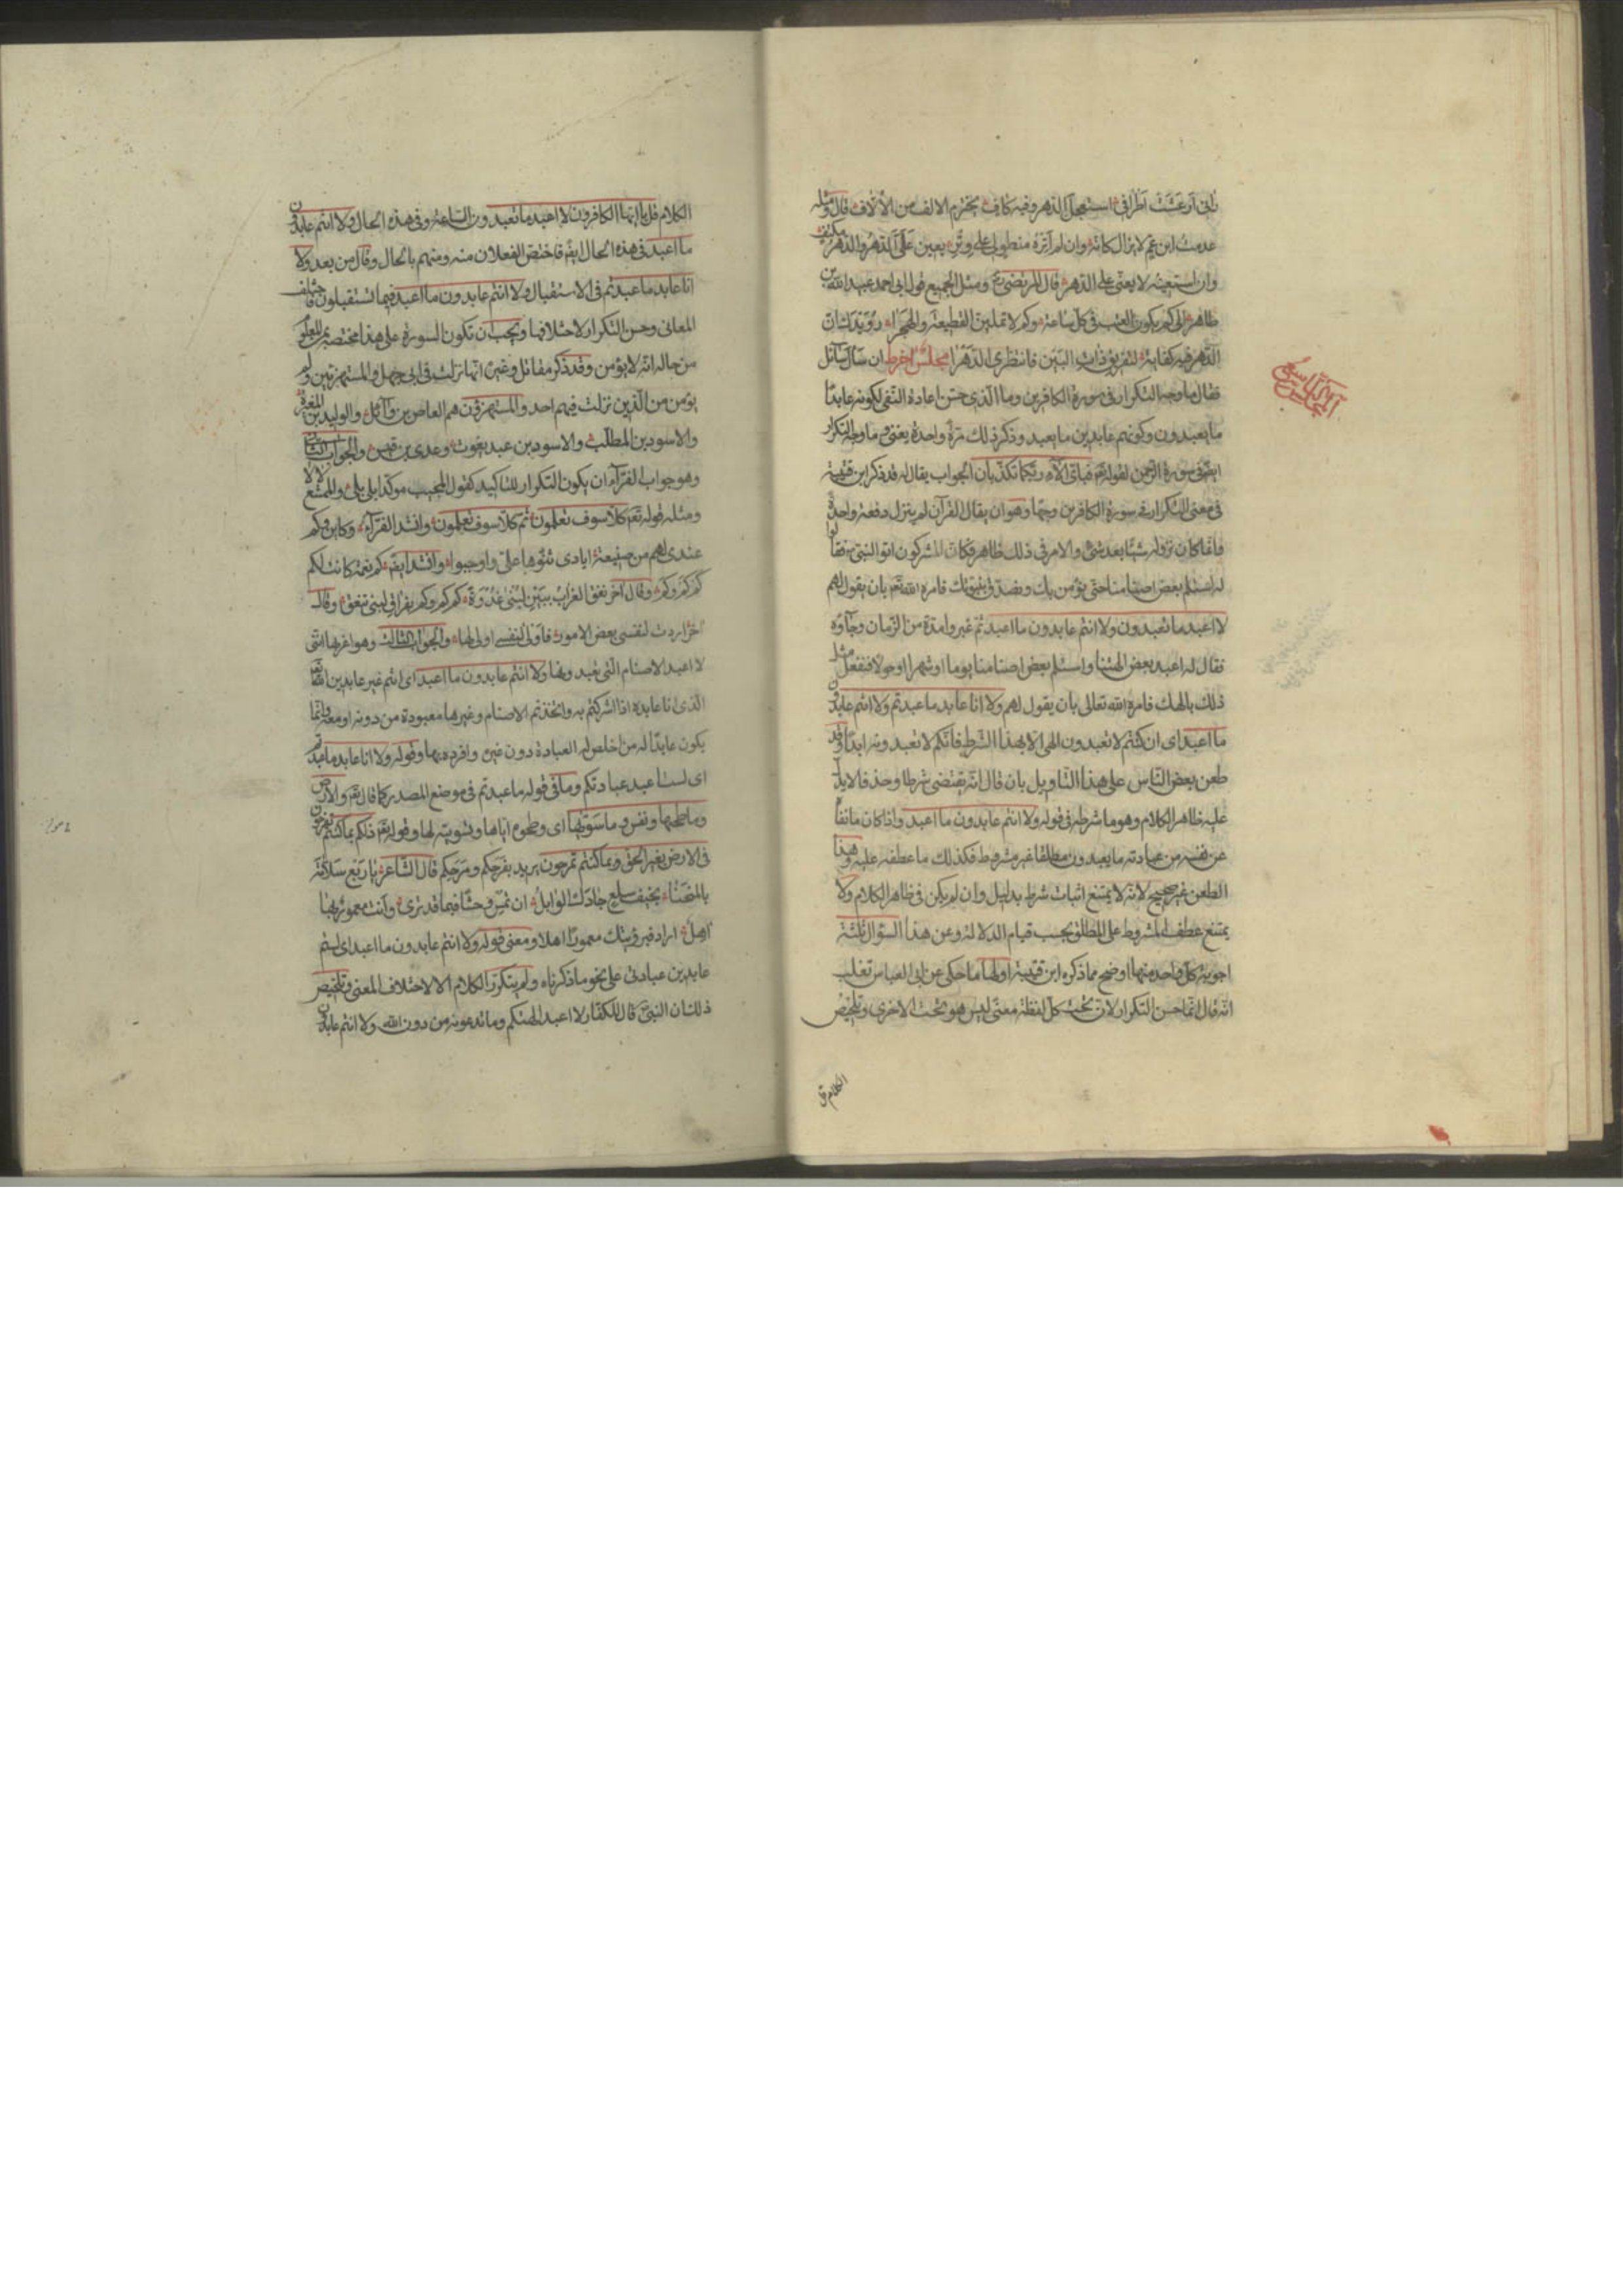 نابى ارعشت اطرافى استعجل الدهر وفيه كاف يخترم الالف من الالاف قال ومثله
عدمت ابن عم لا يزال كانه وان لم اتره منطو لى على وتر يعين على الدهر والدهر مكتف
وان استعنه لا يعنى على الدهر قال المرتضى رض ومثل الجميع قول ابى احمد عبيد الله بن
طاهر الى كم يكون العتب فى كل ساعة وكم لا تملين القطيعة والهجرا رويدك ان
الدهر فيه كفاية لتفريق ذات البين فانتظرى الدهرا مجلس اخر ط ان سال سائل
فقال ما وجه التكرار فى سورة الكافرين وما الذى حسن اعادة النفى لكونه عابدا
ما يعبدون وكونهم عابدين ما يعبد وذكر ذلك مرة واحدة يغنى وما وجه التكرار
ايضا فى سورة الرحمن لقوله تعم فباى الآء ربكما تكذبان الجواب يقال له قد ذكر ابن قتيبة
فى معنى التكرار فى سورة الكافرين وجها وهو ان يقال القرآن لم ينزل دفعة واحدة
فانما كان نزوله شيئا بعد شئ والامر فى ذلك ظاهر فكان المشركون اتوا النبى ص فقالوا
له استلم بعض اصنامنا حتى نؤمن بك ونصدق بنبوتك فامره الله تعم بان يقول لهم
لا اعبد ما تعبدون ولا انتم عابدون ما اعبد ثم غبروا مدة من الزمان وجاؤه
فقال له اعبد بعض الهتنا واستلم بعض اصنامنا يوما او شهرا او حولا فنفعل مثل
ذلك بالهك فامره الله تعالى بان يقول لهم ولا انا عابد ما عبدتم ولا انتم عابدون
ما اعبد اى ان كنتم لا تعبدون الهى الا بهذا الشرط فانكم لا تعبدونه ابدا وقد
طعن بعض الناس على هذا التاويل بان قال انه يقتضى شرطا وحذفا لا يدل
عليه ظاهر الكلام وهو ما شرطه فى قوله ولا انتم عابدون ما اعبد واذا كان ما نفاه
عن نفسه من عبادته ما يعبدون مطلقا غير مشروط فكذلك ما عطفه عليه وهذا
الطعن غير صحيح لانه لا يمتنع اثبات شرط بدليل وان لم يكن فى ظاهر الكلام ولا
يمتنع عطف المشروط على المطلق بحسب قيام الدلالة وعن هذا السؤال ثلثة
اجوبة كل واحد منها اوضح مما ذكره ابن قتيبة اولها ما حكى عن ابى العباس ثعلب
انه قال انما حسن التكرار لان تحت كل لفظة معنى ليس هو تحت الاخرى وتلخيص
الكلام ق
الكلام قل يا ايها الكافرون لا اعبد ما تعبدون الساعة وفى هذه الحال ولا انتم عابدون
ما اعبد فى هذه الحال ايضا فاختص الفعلان منه ومنهم بالحال وقال من بعد ولا
انا عابد ما عبدتم فى الاستقبال ولا انتم عابدون ما اعبد فيما تستقبلون فاختلف
المعانى وحسن التكرار لاختلافها ويجب ان تكون السورة على هذا مختصة بمن المعلوم
من حاله انه لا يؤمن وقد ذكر مقاتل وغيره انها نزلت فى ابى جهل والمستهزئين ولم
يؤمن من الذين نزلت فيهم احد والمستهزؤن هم العاص بن وآئل والوليد بن المغيرة
والاسود بن المطلب والاسود بن عبد يغوث وعدى بن قيس والجواب الثانى
وهو جواب الفرآء ان يكون التكرار للتاكيد كقول المجيب موكدا بلى بلى والممتنع لا لا
ومثله قوله تعم كلا سوف تعلمون ثم كلا سوف تعلمون وانشد الفرآء وكاين وكم
عندى لهم من صنيعة ايادى ثنوها على واوجبوا وانشد ايضا كم نعمة كانت لكم
كم كم وكم وقال اخر نغق الغراب ببين لبنى غدوة كم كم وكم بفراق لبنى تنغق وقال
اخر اردت لنفسى بعض الامور فاولى لنفسى اولى لها والجواب الثالث وهو اغربها اننى
لا اعبد الاصنام التى تعبدونها ولا انتم عابدون ما اعبد اى انتم غير عابدين الله
الذى انا عابده اذ اشركتم به واتخذتم الاصنام وغيرها معبودة من دونه او معه وانما
يكون عابدا له من اخلص له العبادة دون غيره وافرده بها وقوله ولا انا عابد ما عبدتم
اى لست اعبد عبادتكم وما فى قوله ما عبدتم فى موضع المصدر كما قال تعم والارض
وما طحيها ونفس وما سويها اى وطحوه اياها وتسويته لها وقوله تعم ذلكم بما كنتم تفرحون
فى الارض بغير الحق وبما كنتم تمرحون يريد بفرحكم ومرحكم قال الشاعر يا ربع سلامة
بالمنحنا بخيف سلع جادك الوابل ان تمس وحشا فيما قد ترى وانت معمور بهنا
اهل اراد فبرؤيتك معمورا اهلا ومعنى قوله ولا انتم عابدون ما اعبد اى لستم
عابدين عبادتى على نحو ما ذكرناه ولم يتكرر الكلام الا لاختلاف المعنى وتلخيص
ذلك ان النبى ص قال للكفار لا اعبد الهتكم وما تدعونه من دون الله ولا انتم عابدون